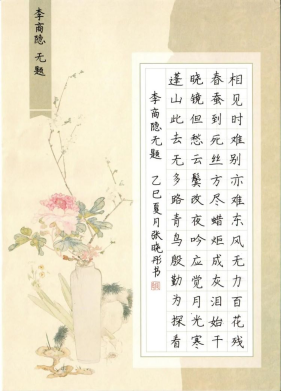 李商隐 无题
相见时难别亦难东风无力百花残
春蚕到死丝方尽蜡炬成灰泪始干
晓镜但愁云鬓改夜吟应觉月光寒
蓬山此去无多路青鸟殷勤为探看
李商隐无题 乙巳夏月张晓彤书